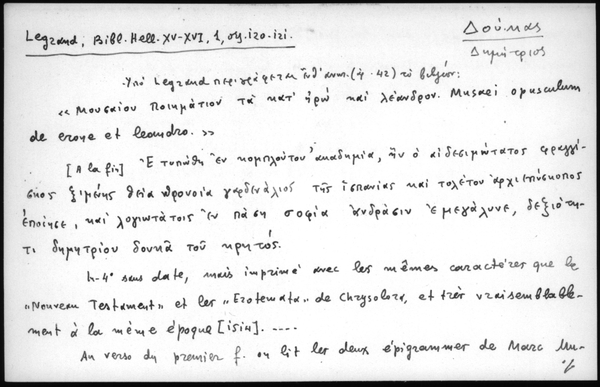 Legrand, Bibl. Hell. XV-XVI, 1, σσ. 120-121.
Δούκας
Δημήτριος
Ὑπὸ Legrand περιγράφεται ὑπ' ἀριθ. (42) τὸ βιβλίον:
«Μουσαίου ποιημάτιον τὰ κατ' ἡρὼ καὶ λέανδρον. Musaei opusculum
de erone et leandro.»
[A la fin] Ἐτυπώθη ἐν κομπλούτου ἀκαδημία, ἣν ὁ αἰδεσιμώτατος φραγγί-
σκος ξιμένης θεία προνοία γαρδενάλιος τῆς ἱσπανίας καὶ τολέτου ἀρχιεπίσκοπος
ἐποίησε, καὶ λογιωτάτοις ἐν πάση σοφία ἀνδράσιν ἐμεγάλυνε, δεξιότη-
τι δημητρίου δουκᾶ τοῦ κρητός.
In-4° sans date, mais imprimé avec les mêmes caractères que le
"Nouveau Testament" et les "Erotemata" de Chrysolora, et très vraisemblable-
ment à la même époque [1514]. ----
Au verso du premier f. on lit les deux épigrammes de Marc Mu-